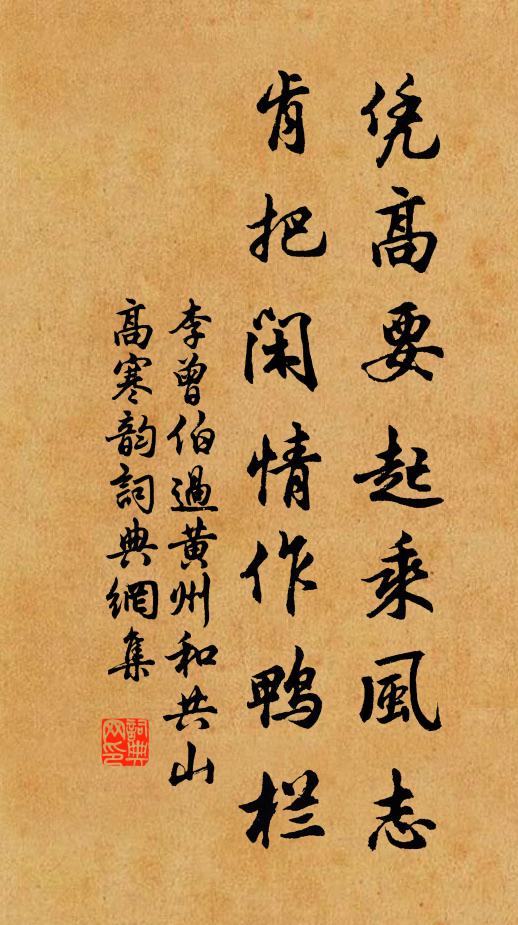 凭高要起乘風志
肯把閑情作鴨栏
李曾伯過黃州和共山
高寒韵詞典網集
詞典網印